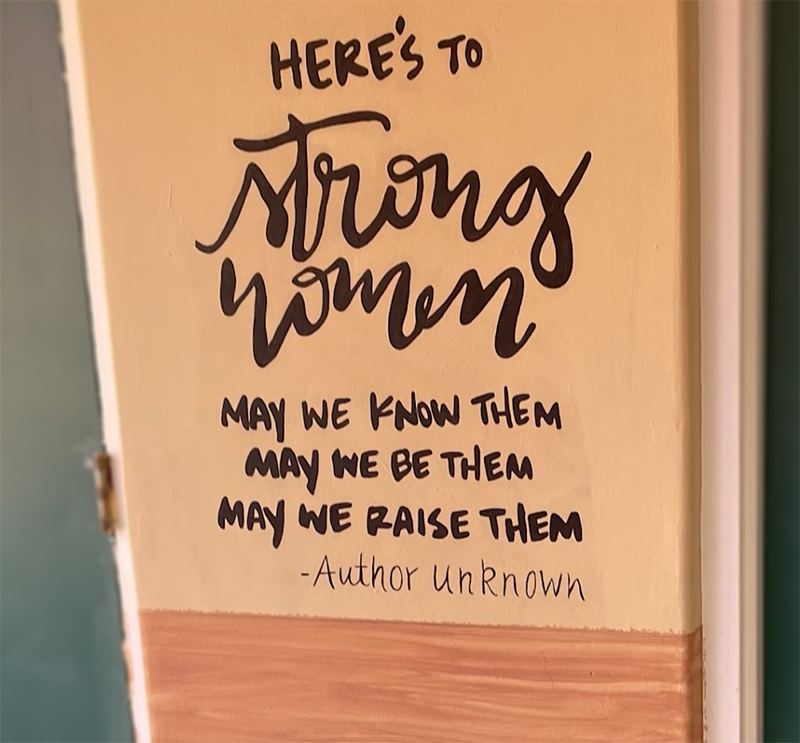 HERE'S TO
strong
women
MAY WE KNOW THEM
MAY WE BE THEM
MAY WE RAISE THEM
-Author unknown